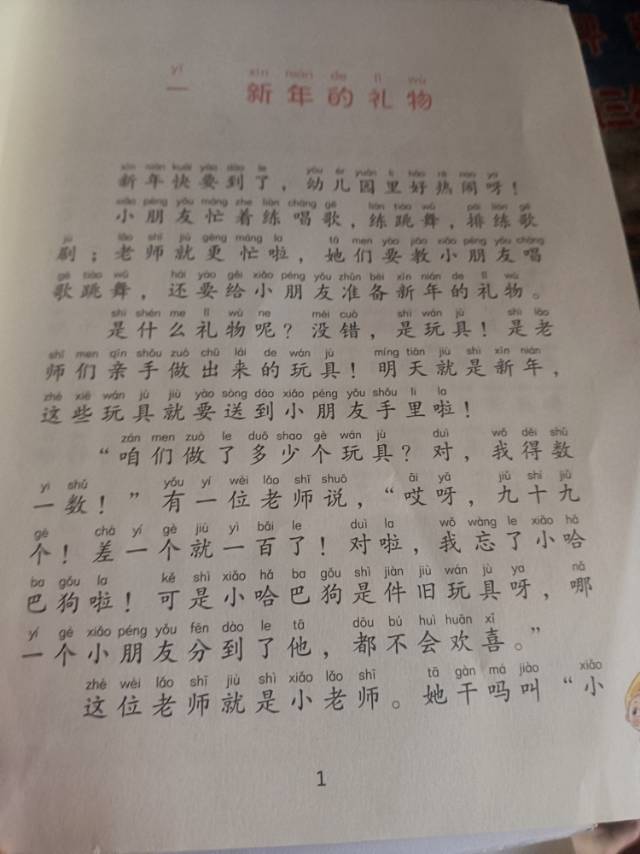 一 新年的礼物
新年快要到了，幼儿园里好热闹呀！
小朋友忙着练唱歌，练跳舞，排练歌
剧；老师就更忙啦，她们要教小朋友唱
歌跳舞，还要给小朋友准备新年的礼物。
是什么礼物呢？没错，是玩具！是老
师们亲手做出来的玩具！明天就是新年，
这些玩具就要送到小朋友手里啦！
“咱们做了多少个玩具？对，我得数
一数！”有一位老师说，“哎呀，九十九
个！差一个就一百了！对啦，我忘了小哈
巴狗啦！可是小哈巴狗是件旧玩具呀，哪
一个小朋友分到了他，都不会欢喜。”
这位老师就是小老师。她干吗叫“小
1